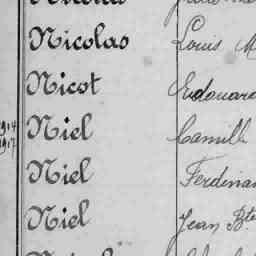 Nicolas Louis M
Nicot Edouard
1914 Niel Camill
1917
Niel Ferdinan
Niel Jean Bte